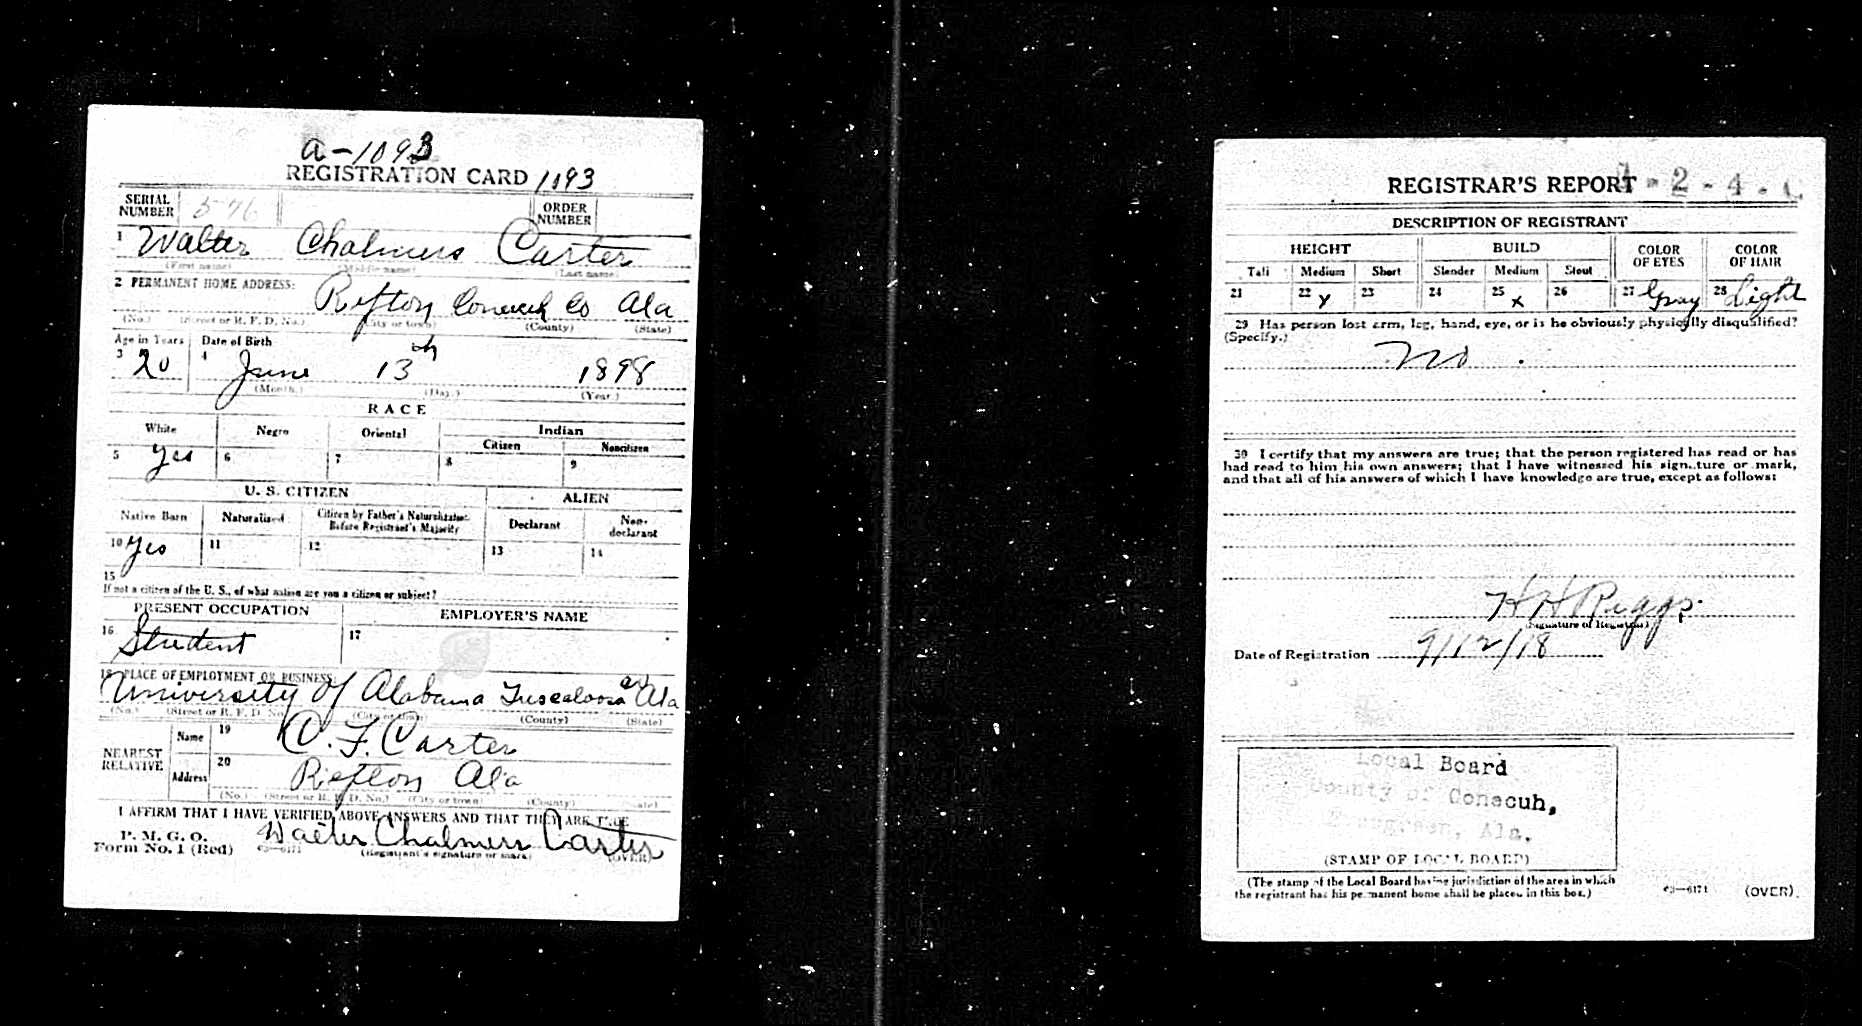 a-1093
REGISTRATION CARD 1093
SERIAL NUMBER 576 ORDER NUMBER
1 Walter Chalmers Carter
(First name) (Middle name) (Last name)
2 PERMANENT HOME ADDRESS:
Repton Conecuh Co Ala
(No.) (Street or R. F. D. No.) (City or town) (County) (State)
Age in Years Date of Birth
3 20 4 June 13th 1898
(Month.) (Day.) (Year.)
RACE
White Negro Oriental Indian
Citizen Noncitizen
5 Yes 6 7 8 9
U. S. CITIZEN ALIEN
Native Born Naturalized Citizen by Father's Naturalization Before Registrant's Majority Declarant Non-declarant
10 Yes 11 12 13 14
15
If not a citizen of the U. S., of what nation are you a citizen or subject?
PRESENT OCCUPATION EMPLOYER'S NAME
16 Student 17
18 PLACE OF EMPLOYMENT OR BUSINESS:
University of Alabama Tuscaloosa Ala
(No.) (Street or R. F. D. No.) (City or town) (County) (State)
NEAREST RELATIVE Name 19 C. F. Carter
Address 20 Repton Ala
(No.) (Street or R. F. D. No.) (City or town) (County) (State)
I AFFIRM THAT I HAVE VERIFIED ABOVE ANSWERS AND THAT THEY ARE TRUE
P. M. G. O.
Form No. 1 (Red) 03—6171 Walter Chalmers Carter
(Registrant's signature or mark) (OVER)
REGISTRAR'S REPORT 1-2-4. C
DESCRIPTION OF REGISTRANT
HEIGHT BUILD COLOR OF EYES COLOR OF HAIR
Tall Medium Short Slender Medium Stout
21 22 Y 23 24 25 x 26 27 Gray 28 Light
29 Has person lost arm, leg, hand, eye, or is he obviously physically disqualified?
(Specify.)
No.
30 I certify that my answers are true; that the person registered has read or has
had read to him his own answers; that I have witnessed his signature or mark,
and that all of his answers of which I have knowledge are true, except as follows:
H H Riggs
(Signature of Registrar)
Date of Registration 9/12/18
Local Board
County of Conecuh,
Evergreen, Ala.
(STAMP OF LOCAL BOARD)
(The stamp of the Local Board having jurisdiction of the area in which
the registrant has his permanent home shall be placed in this box.)
03—6171 (OVER)